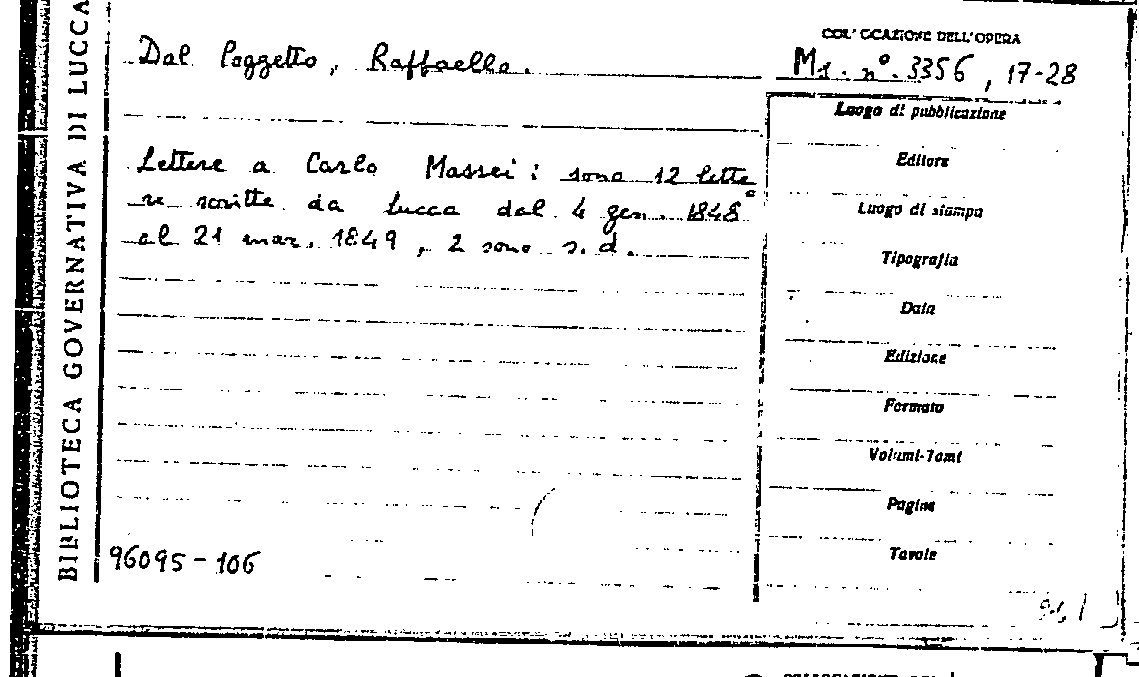 BIBLIOTECA GOVERNATIVA DI LUCCA
Dal Poggetto, Raffaello.
COLLOCAZIONE DELL'OPERA
Ms. n°. 3356, 17-28
Luogo di pubblicazione
Lettere a Carlo Massei: sono 12 lette
Editore
re scritte da Lucca dal 4 gen. 1848
Luogo di stampa
al 21 mar. 1849, 2 sono s.d.
Tipografia
Data
Edizione
Formato
Volumi-Tomi
Pagine
Tavole
96095-106